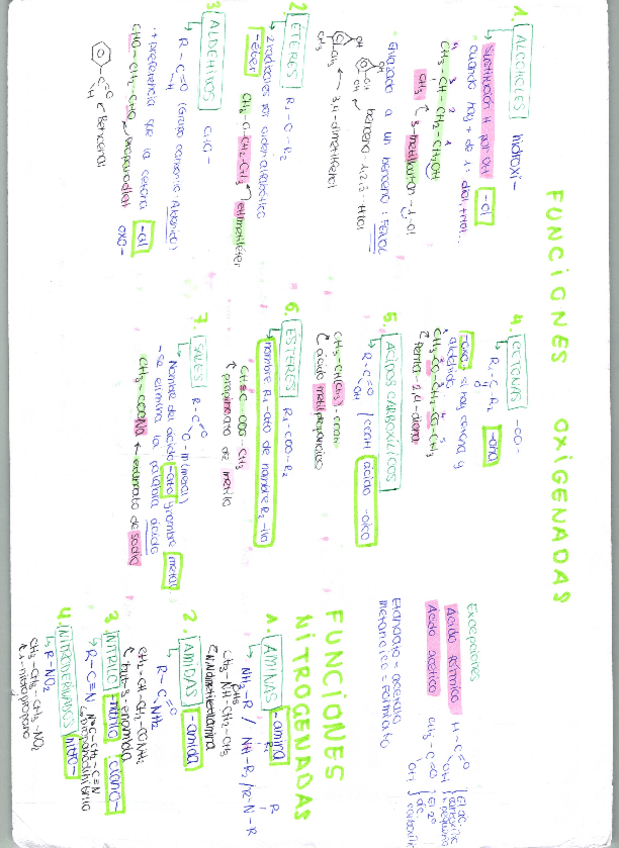 FUNCIONES OXIGENADAS
1. ALCOHOLES hidroxi-
Sustitución H por OH -ol
cuando hay + de 1: diol, triol...
4 3 2 1
CH3-CH-CH2-CH2OH
CH3 3-metilbutan-1-ol
Enlazado a un benceno: Fenol
OH
OH
benceno-1,2,3-triol
3,4-dimetilfenol
CH3
2. ÉTERES R1-O-R2
2 radicales por orden alfabético
-éter CH3-O-CH2-CH3 etilmetiléter
3. ALDEHIDOS CHO-
R-C=O (Grupo carbonilo-Aldehído)
H
+ preferencia que la cetona -al
CHO-CH2-CHO propanodial oxo-
H Bencenal
4. CETONAS -CO-
R1-C-R2 -ona
O
-oxo, si hay cetona y aldehído
1 2 3 4 5
CH3-CO-CH2-CO-CH3
penta-2,4-diona
5. ÁCIDOS CARBOXÍLICOS
R-C=O / COOH ácido -oico
OH
CH3-CH(CH3)-COOH
ácido metilpropanoico
6. ÉSTERES R1-COO-R2
nombre R1-ato de nombre R2-ilo
CH≡C-COO-CH3
propinoato de metilo
7. SALES R-C=O
O-M (metal)
Nombre del ácido -ato y nombre metal
-se elimina la palabra ácido
CH3-COONa etanoato de sodio
Excepciones
Ácido fórmico H-C=O
OH
Ácido acético CH3-C=O
OH
Etanoato = acetato
metanoico = formiato
FUNCIONES NITROGENADAS
1. AMINAS -amina
NH2-R / NH-R2 / R-N-R
CH3-NH-CH2-CH3
2. AMIDAS -amida
R-C=O
NH2
CH2=CH-CH2-CONH2
but-3-enamida
3. NITRILO -nitrilo ciano-
R-C≡N N≡C-CH2-C≡N
propanodinitrilo
4. NITRODERIVADOS nitro-
R-NO2
CH3-CH2-CH2-NO2
1-nitropropano